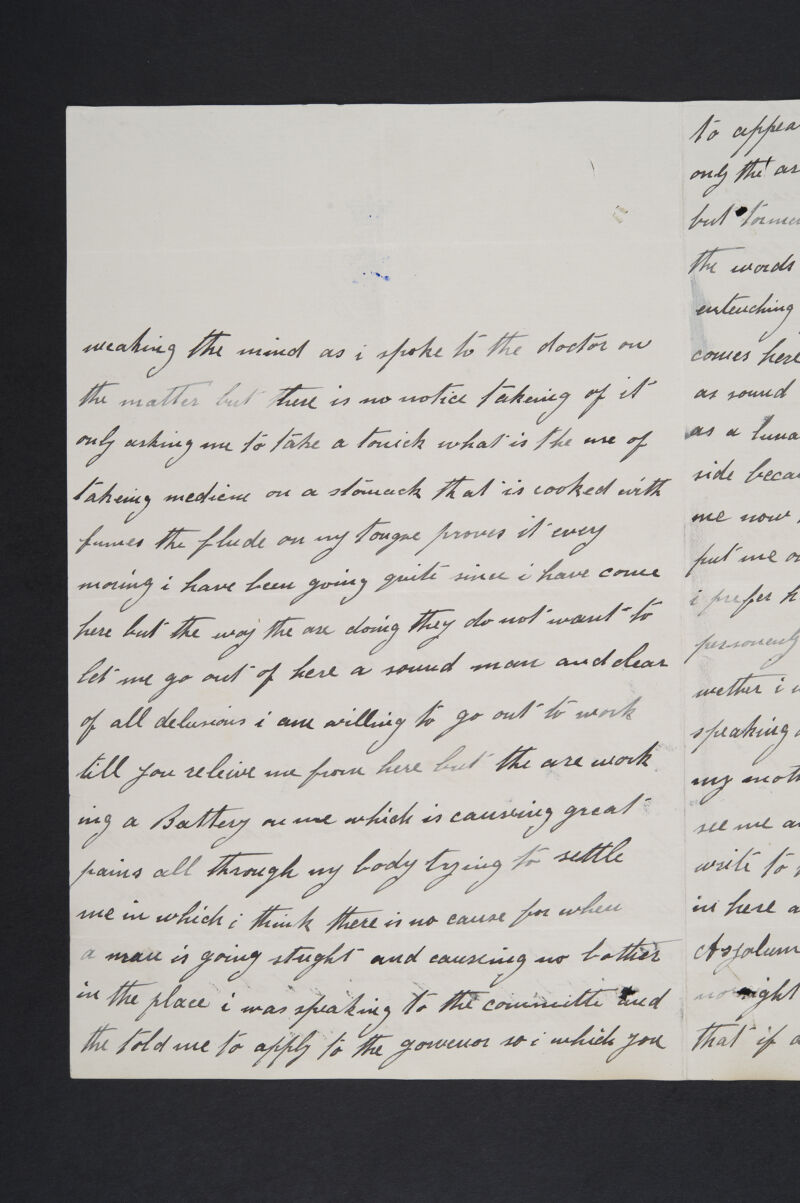 weaking the mind as i spoke to the doctor on
the matter but there is no notice takeing of it
only asking me to take a tonick what is the use of
takeing medicine on a stomack that is cooked with
fumes the flude on my tongue proves it every
moring i have been going quite since i have come
here but the way the are doing they do not want to
let me go out of here a sound man and clear
of all delusions i am willing to go out to work
till you releive me from here but the are work
ing a Battery on me which is causeing great
pains all through my body trying to settle
me in which i think there is no cause for when
a man is going stright and causeing no bother
in the place i was speaking to the committe and
the told me to apply to the governor so i which you
to appea
only the as
but
the words
comes here
as sound
as a luna
side becau
me now
put me o
i prefer h
wether i
speaking
my moth
see me a
write to
in here a
Asylum
that if a